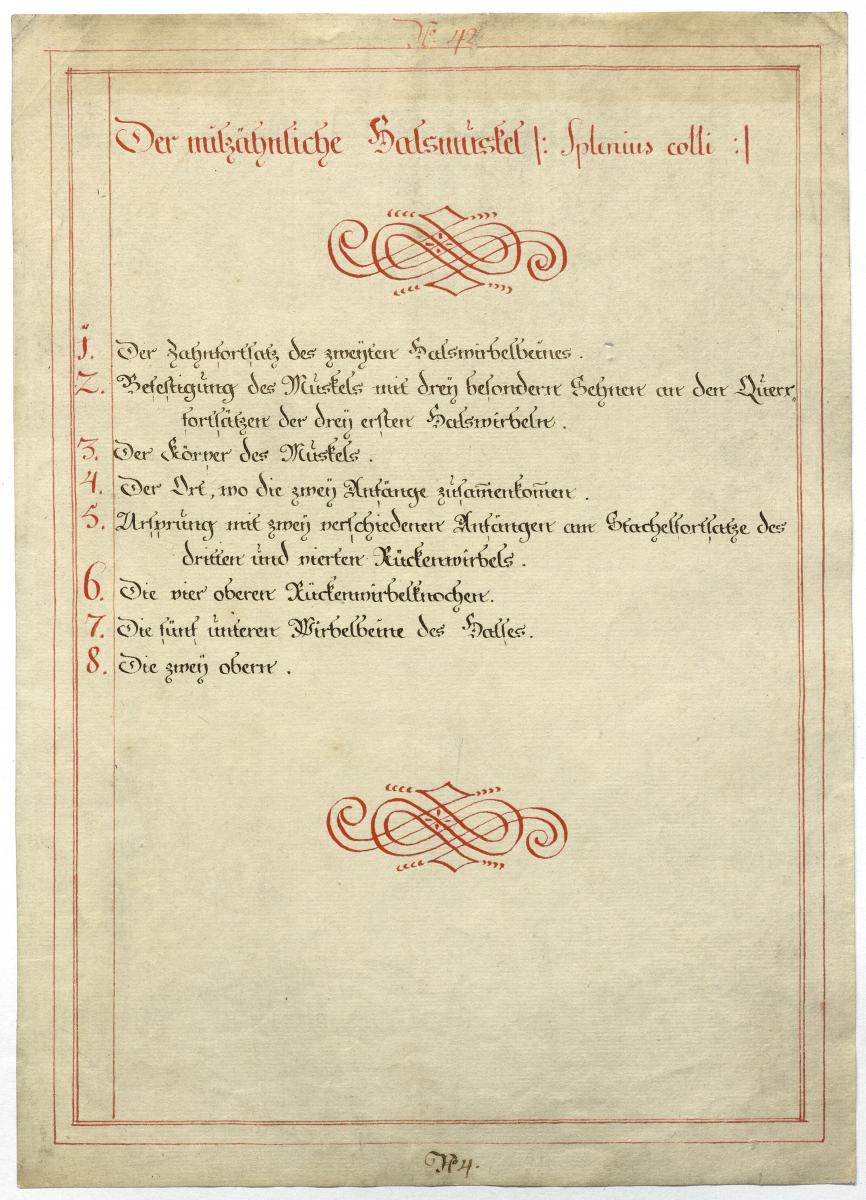 Nº 42
Der milzähnliche Halsmuskel |: Splenius colli :|
1. Der Zahnfortsatz des zweÿten Halswirbelbeines.
2. Befestigung des Muskels mit dreÿ besondern Sehnen an den Querr„
fortsätzen der dreÿ ersten Halswirbeln.
3. Der Körper des Muskels.
4. Der Ort, wo die zweÿ Anfänge zusam̅enkom̅en.
5. Ursprung mit zweÿ verschiedenen Anfängen am Stachelfortsatze des
dritten und vierten Rückenwirbels.
6. Die vier oberen Rückenwirbelknochen.
7. Die fünf unteren Wirbelbeine des Halses.
8. Die zweÿ obern.
Nº 4.